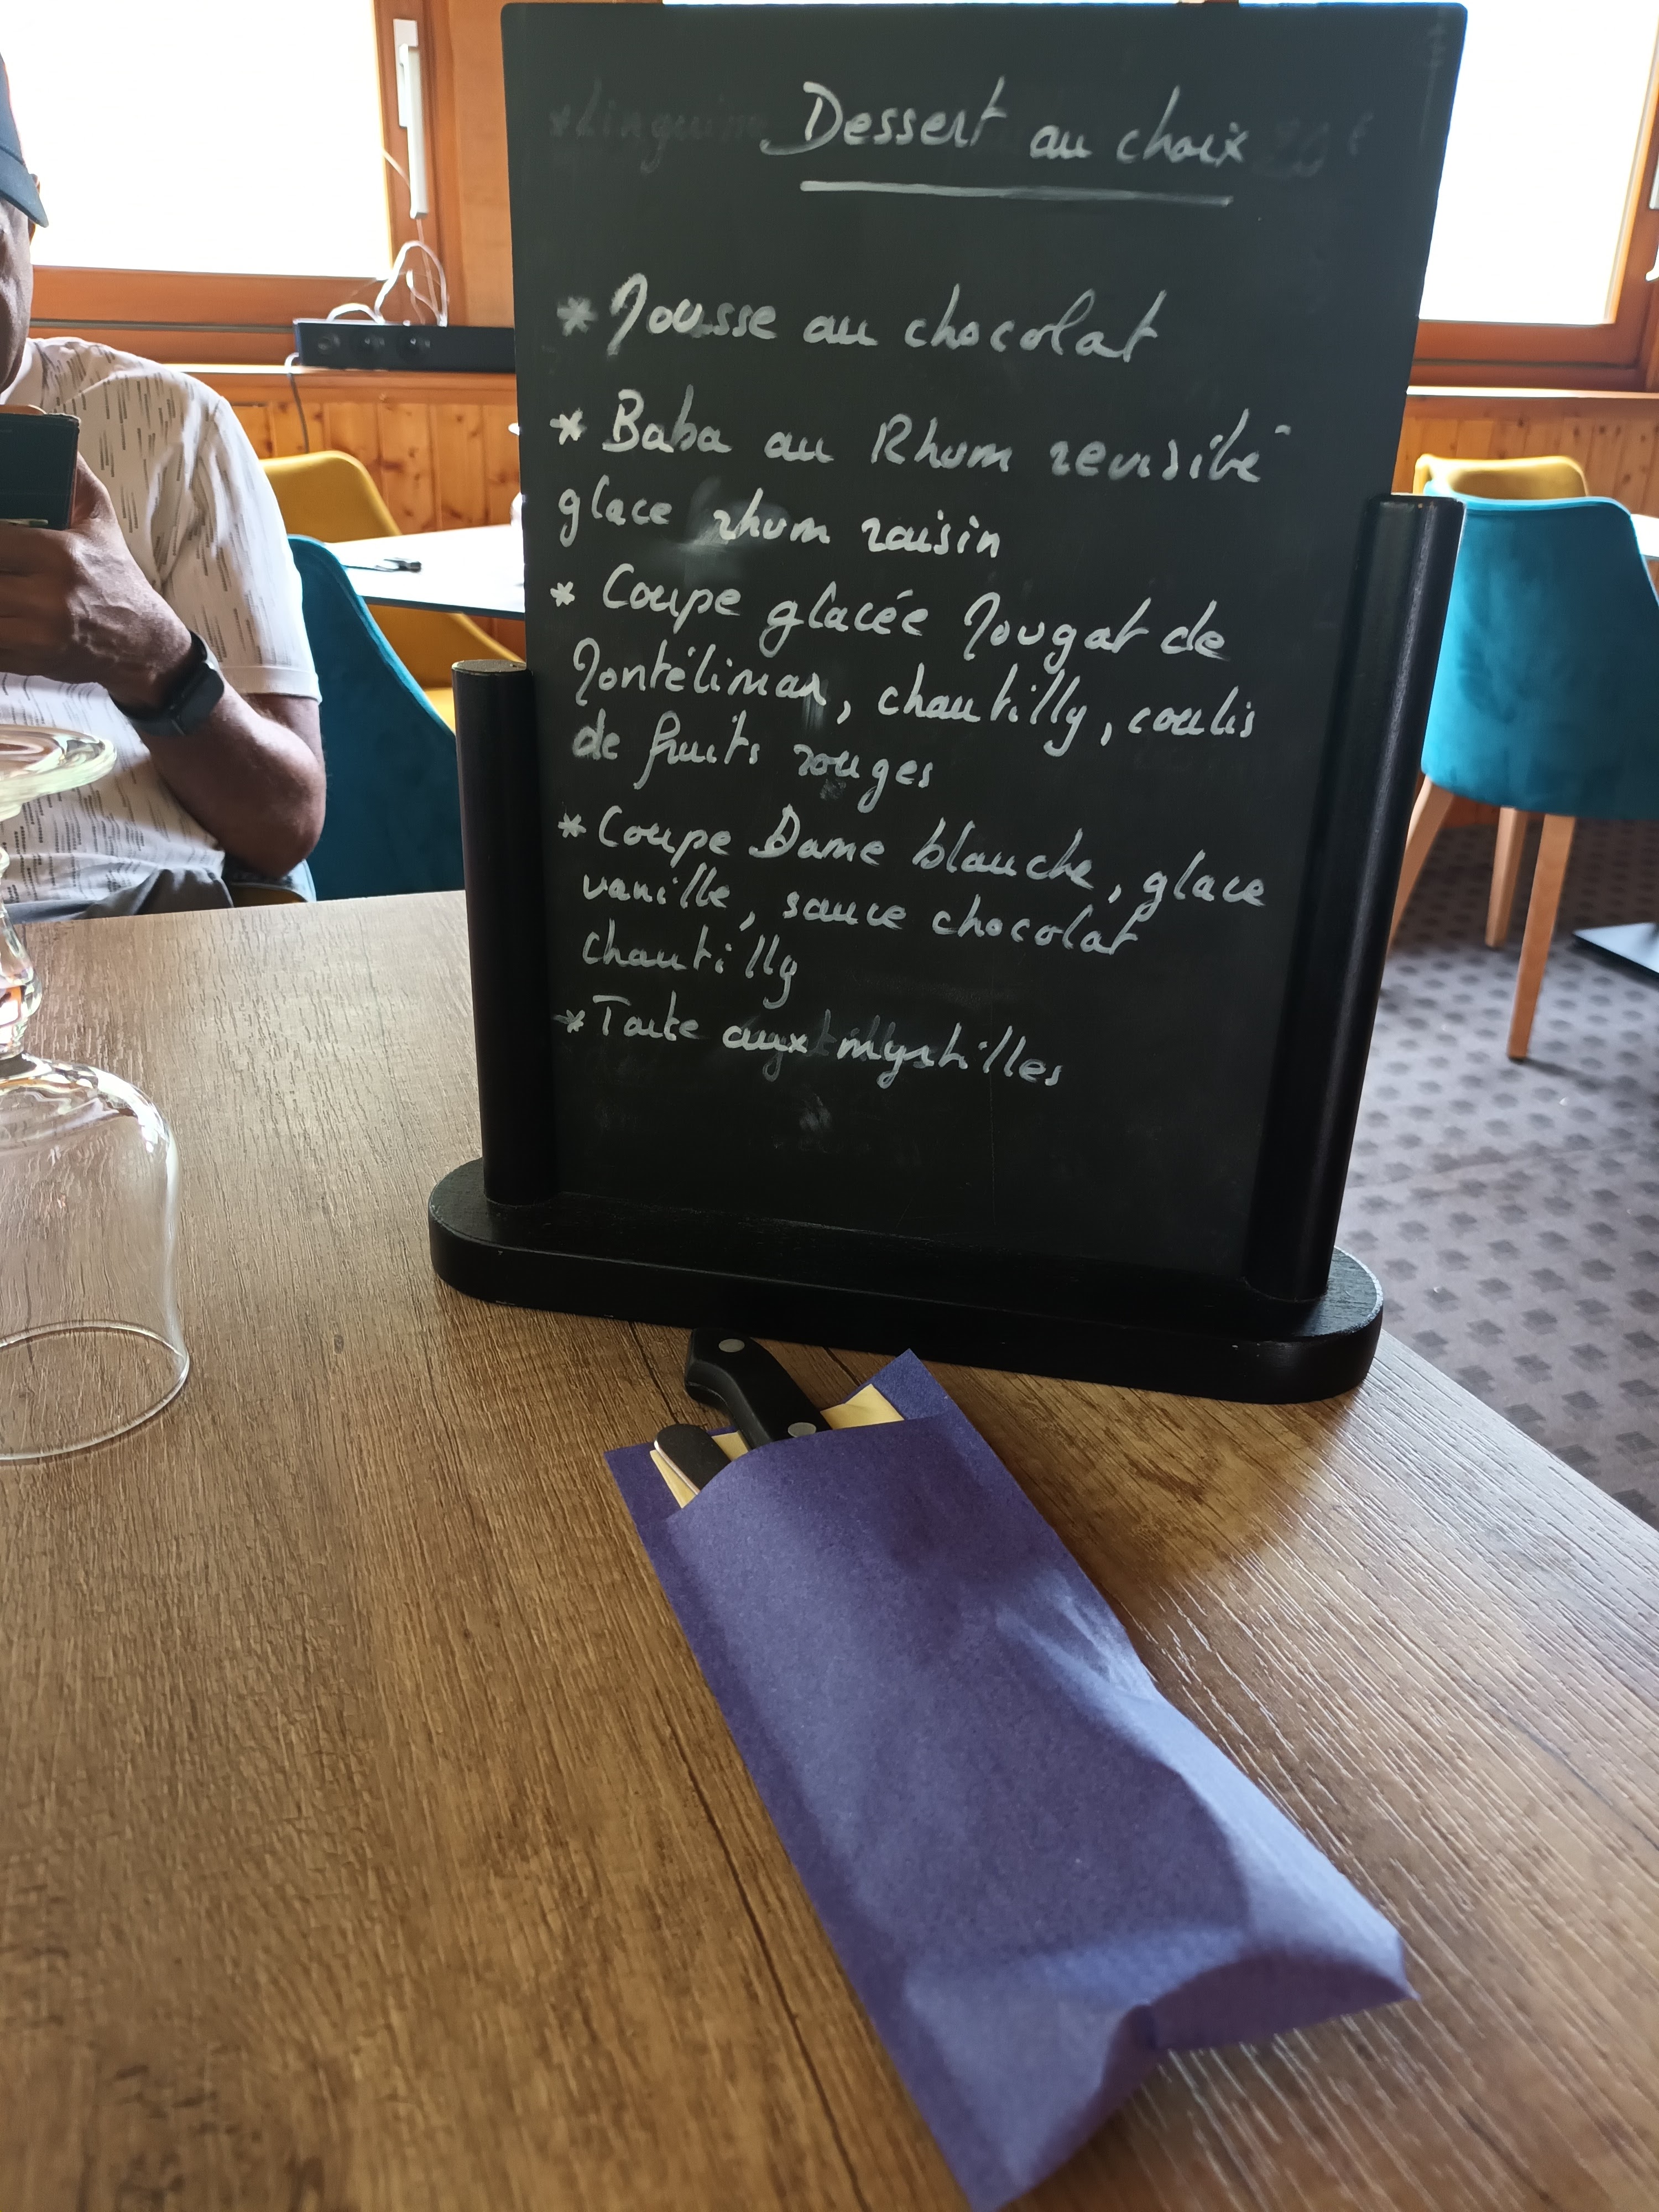 Dessert au choix
* Mousse au chocolat
* Baba au Rhum revisité
glace rhum raisin
* Coupe glacée Nougat de
Montélimar, chantilly, coulis
de fruits rouges
* Coupe Dame blanche, glace
vanille, sauce chocolat
chantilly
* Tarte aux myrtilles